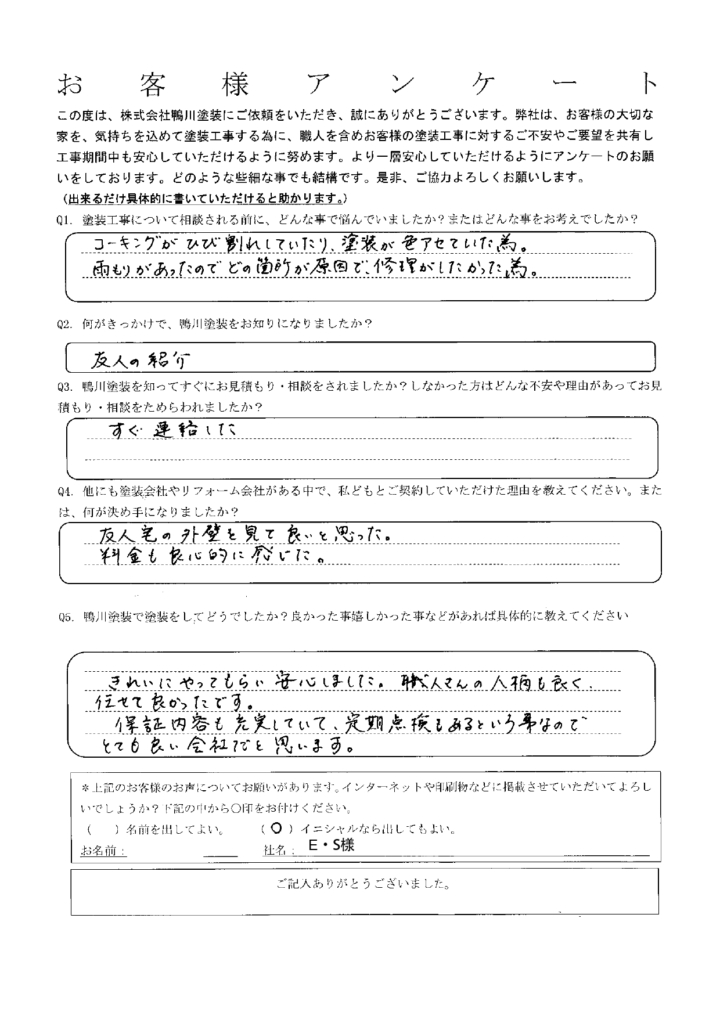 お客様アンケート
この度は、株式会社鴨川塗装にご依頼をいただき、誠にありがとうございます。弊社は、お客様の大切な
家を、気持ちを込めて塗装工事する為に、職人を含めお客様の塗装工事に対するご不安やご要望を共有し
工事期間中も安心していただけるように努めます。より一層安心していただけるようにアンケートのお願
いをしております。どのような些細な事でも結構です。是非、ご協力よろしくお願いします。
（出来るだけ具体的に書いていただけると助かります。）
Q1. 塗装工事について相談される前に、どんな事で悩んでいましたか？またはどんな事をお考えでしたか？
コーキングがひび割れしていたり、塗装が色アセていた為。
雨もりがあったのでどの箇所が原因で、修理がしたかった為。
Q2. 何がきっかけで、鴨川塗装をお知りになりましたか？
友人の紹介
Q3. 鴨川塗装を知ってすぐにお見積もり・相談をされましたか？しなかった方はどんな不安や理由があってお見
積もり・相談をためらわれましたか？
すぐ連絡した
Q4. 他にも塗装会社やリフォーム会社がある中で、私どもとご契約していただけた理由を教えてください。また
は、何が決め手になりましたか？
友人宅の外壁を見て良いと思った。
料金も良心的に感じた。
Q5. 鴨川塗装で塗装をしてどうでしたか？良かった事嬉しかった事などがあれば具体的に教えてください
きれいにやってもらい安心しました。職人さんの人柄も良く、
任せて良かったです。
保証内容も充実していて、定期点検もあるという事なので
とても良い会社だと思います。
＊上記のお客様のお声についてお願いがあります。インターネットや印刷物などに掲載させていただいてよろし
いでしょうか？下記の中から〇印をお付けください。
（　）名前を出してよい。　（〇）イニシャルなら出してもよい。
お名前：　社名：　E・S様
ご記入ありがとうございました。